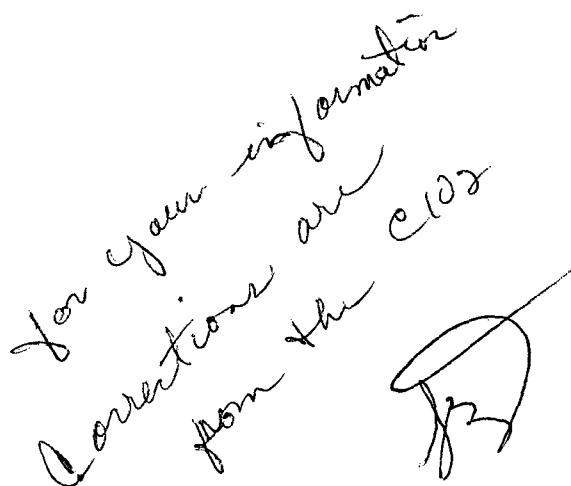 for your information
Corrections are
from the C102